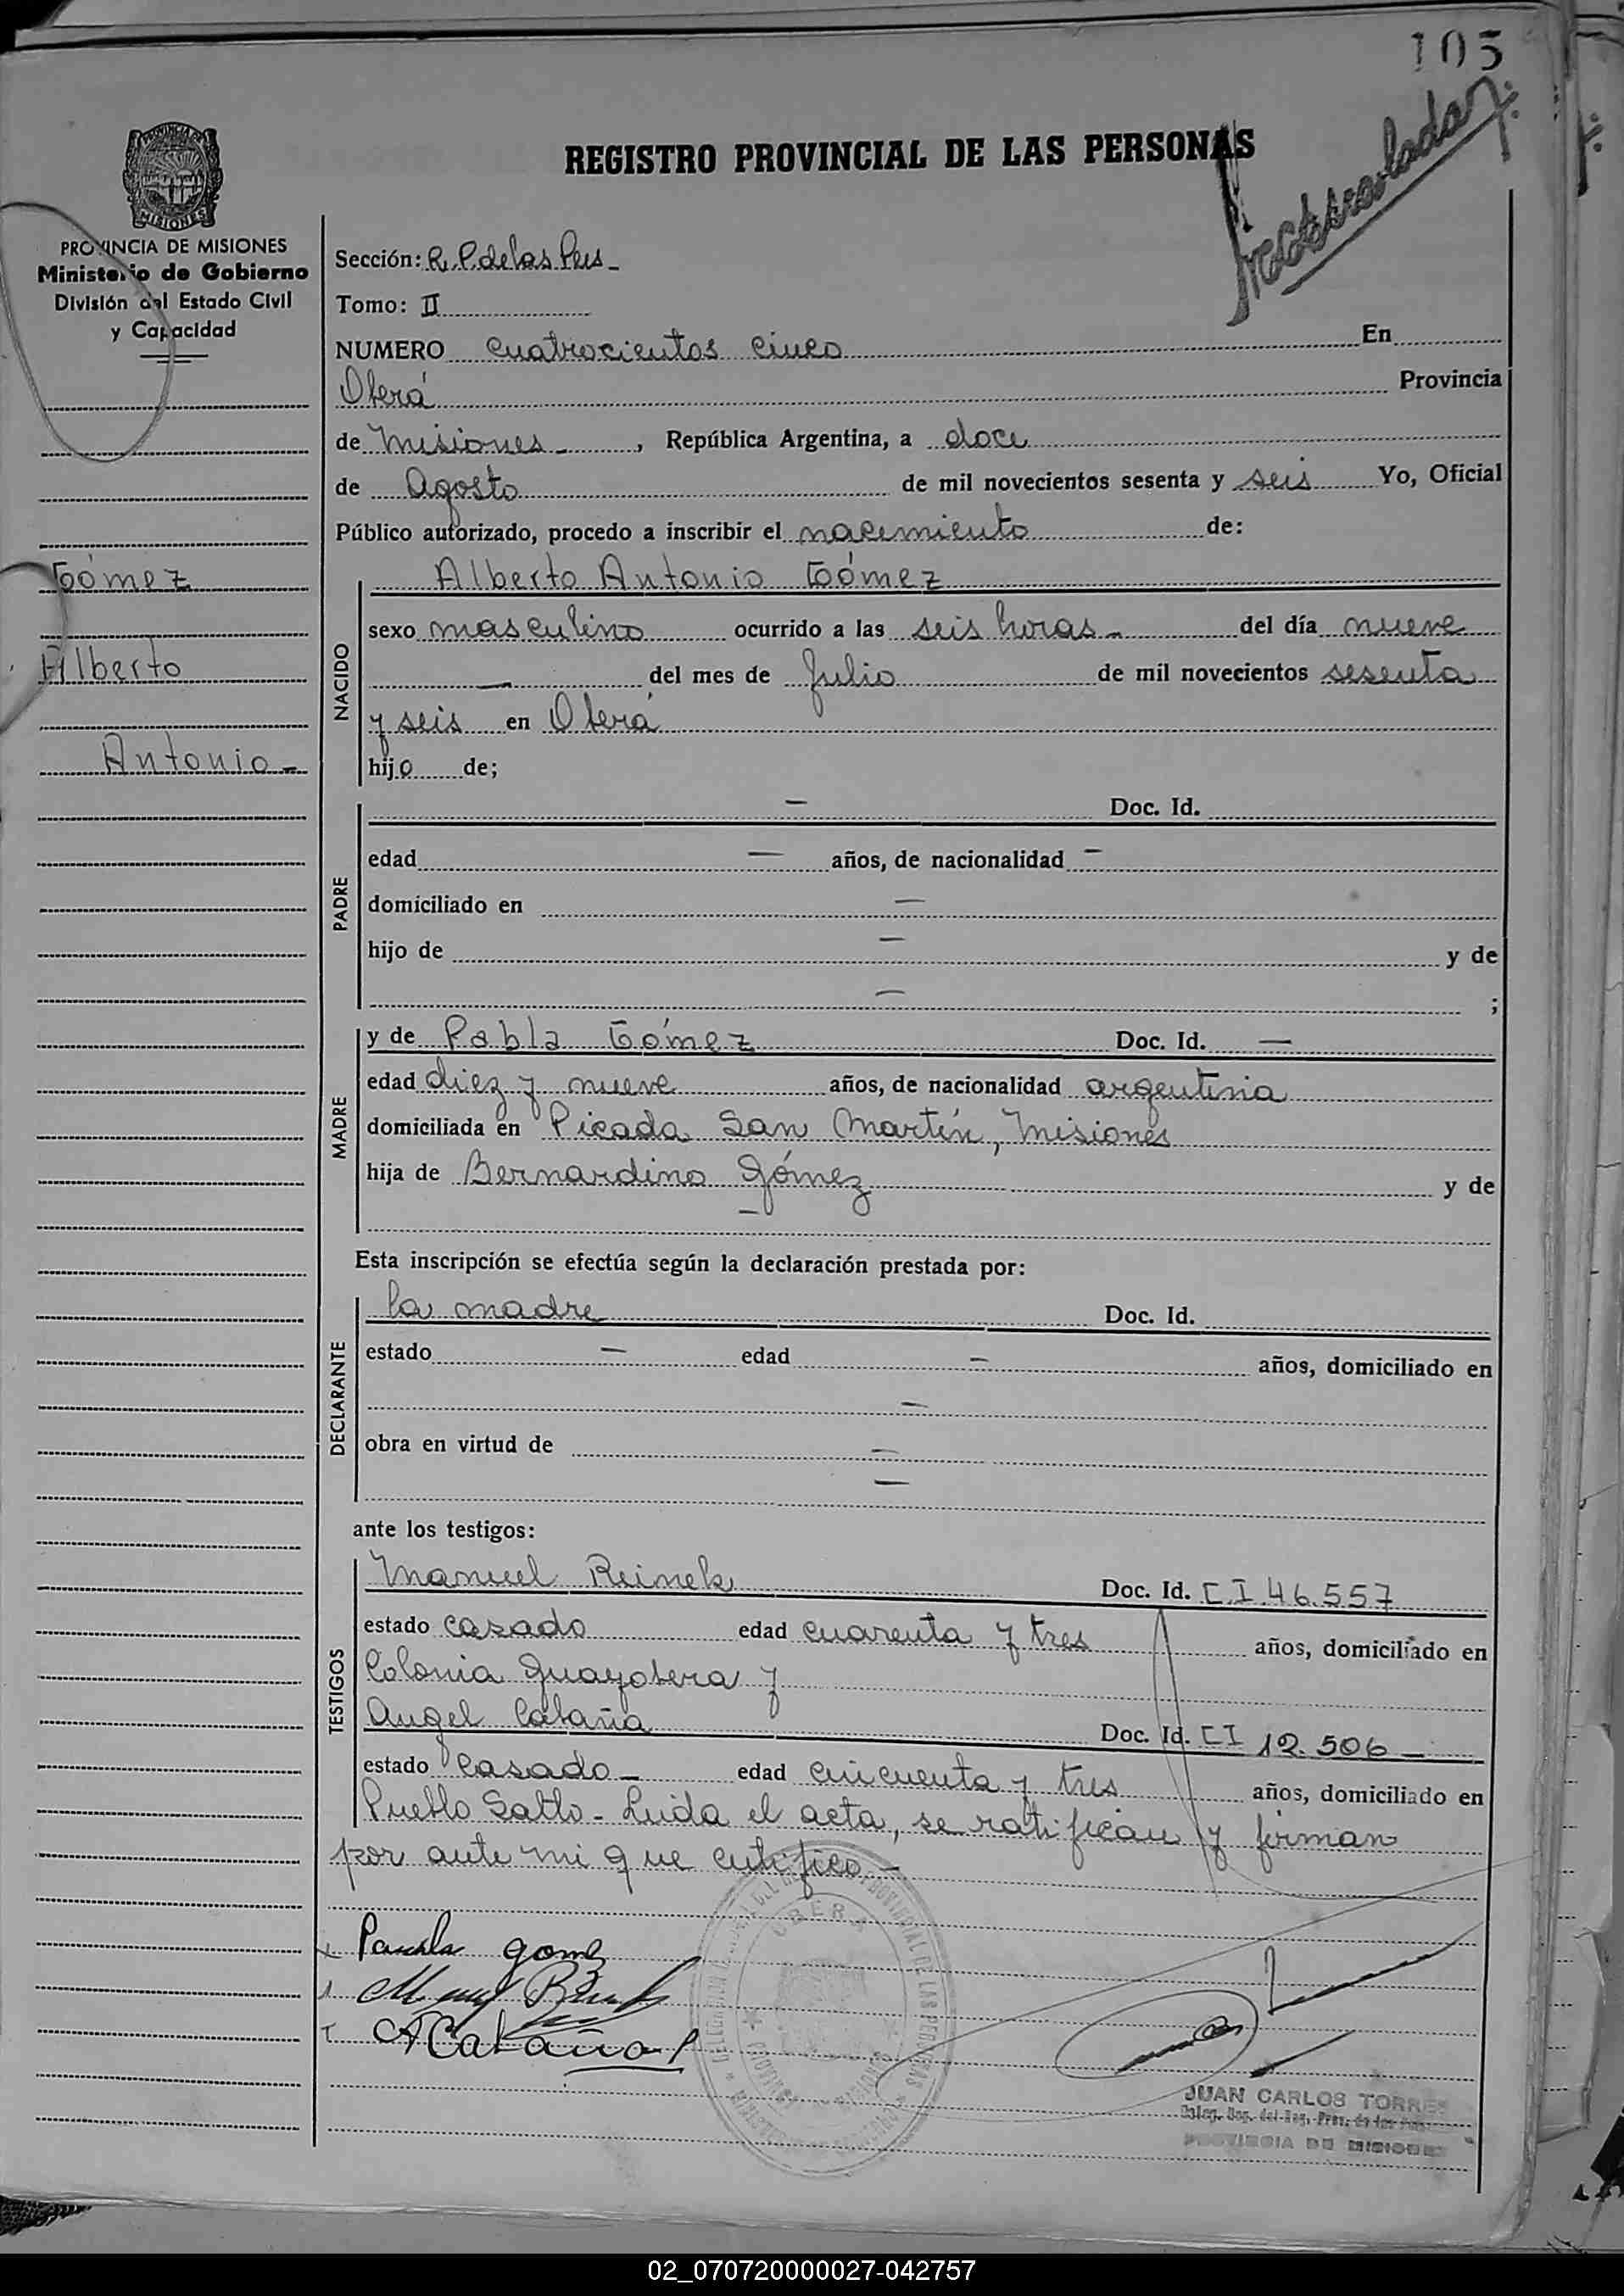 105
REGISTRO PROVINCIAL DE LAS PERSONAS
MISIONES
PROVINCIA DE MISIONES
Ministerio de Gobierno
División del Estado Civil
y Capacidad
Sección: R. P. de las Pers -
Tomo: II
NUMERO cuatrocientos cinco En
Oberá Provincia
de Misiones - , República Argentina, a doce
de Agosto de mil novecientos sesenta y seis Yo, Oficial
Público autorizado, procedo a inscribir el nacimiento de:
Gómez
Alberto
Antonio -
NACIDO
Alberto Antonio Gómez
sexo masculino ocurrido a las seis horas - del día nueve
— del mes de Julio de mil novecientos sesenta
y seis en Oberá
hijo de;
PADRE
— Doc. Id.
edad — años, de nacionalidad —
domiciliado en —
hijo de — y de
— ;
MADRE
y de Pabla Gómez Doc. Id. —
edad diez y nueve años, de nacionalidad argentina
domiciliada en Picada San Martín, Misiones
hija de Bernardino Gómez y de
—
Esta inscripción se efectúa según la declaración prestada por:
DECLARANTE
la madre Doc. Id.
estado — edad — años, domiciliado en
—
obra en virtud de —
—
ante los testigos:
TESTIGOS
Manuel Reinek Doc. Id. C I 46.557
estado casado edad cuarenta y tres años, domiciliado en
Colonia Guayabera y
Angel Cabaña Doc. Id. C I 12.506 -
estado casado - edad cincuenta y tres años, domiciliado en
Pueblo Salto - Leida el acta, se ratifican y firman
por ante mi que certifico -
gomez
A Cabaña
OBERA
JUAN CARLOS TORRES
PROVINCIA DE MISIONES
02_070720000027-042757